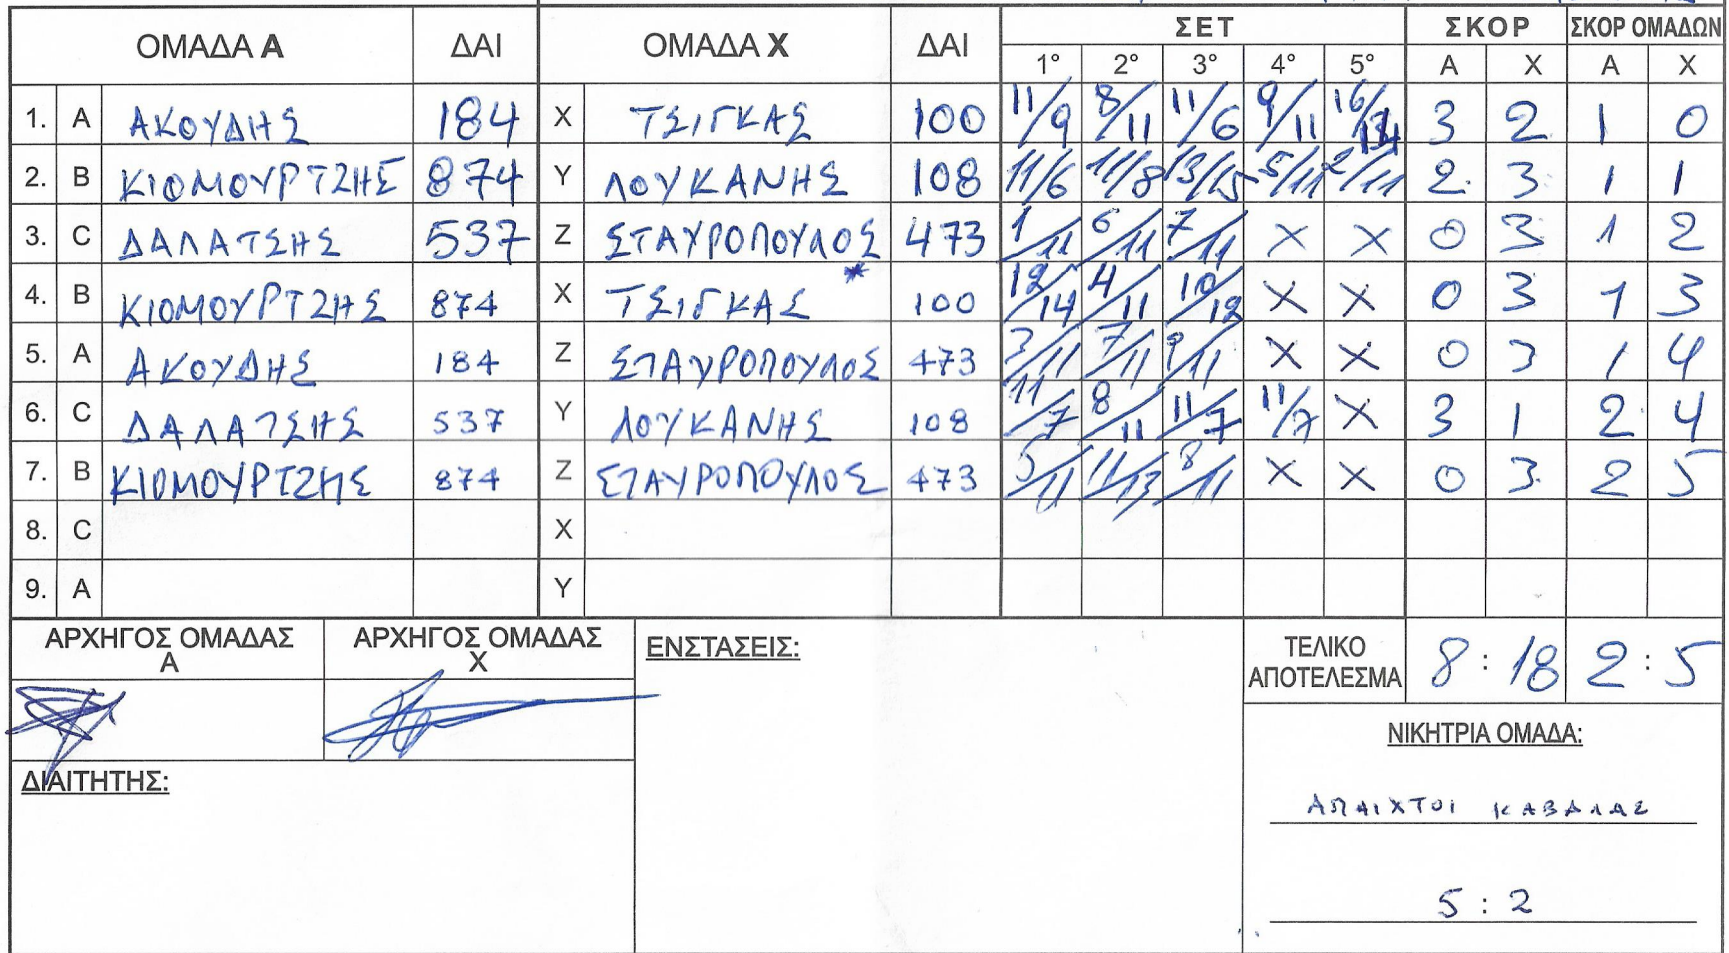 ΟΜΑΔΑ Α ΔΑΙ ΟΜΑΔΑ Χ ΔΑΙ ΣΕΤ ΣΚΟΡ ΣΚΟΡ ΟΜΑΔΩΝ
1° 2° 3° 4° 5° Α Χ Α Χ
1. A ΑΚΟΥΔΗΣ 184 X ΤΣΙΓΚΑΣ 100 11/9 8/11 11/6 9/11 16/14 3 2 1 0
2. B ΚΙΟΜΟΥΡΤΖΗΣ 874 Y ΛΟΥΚΑΝΗΣ 108 11/6 11/8 13/15 5/11 2/11 2 3 1 1
3. C ΔΑΛΑΤΣΗΣ 537 Z ΣΤΑΥΡΟΠΟΥΛΟΣ 473 1/11 6/11 7/11 X X 0 3 1 2
4. B ΚΙΟΜΟΥΡΤΖΗΣ 874 X ΤΣΙΓΚΑΣ * 100 12/14 4/11 10/12 X X 0 3 1 3
5. A ΑΚΟΥΔΗΣ 184 Z ΣΤΑΥΡΟΠΟΥΛΟΣ 473 3/11 7/11 9/11 X X 0 3 1 4
6. C ΔΑΛΑΤΣΗΣ 537 Y ΛΟΥΚΑΝΗΣ 108 11/7 8/11 11/7 11/7 X 3 1 2 4
7. B ΚΙΟΜΟΥΡΤΖΗΣ 874 Z ΣΤΑΥΡΟΠΟΥΛΟΣ 473 5/11 11/13 8/11 X X 0 3 2 5
8. C X
9. A Y
ΑΡΧΗΓΟΣ ΟΜΑΔΑΣ Α
ΑΡΧΗΓΟΣ ΟΜΑΔΑΣ Χ
ΕΝΣΤΑΣΕΙΣ:
ΤΕΛΙΚΟ ΑΠΟΤΕΛΕΣΜΑ 8 : 18 2 : 5
ΝΙΚΗΤΡΙΑ ΟΜΑΔΑ:
ΔΙΑΙΤΗΤΗΣ:
ΑΠΑΙΧΤΟΙ ΚΑΒΑΛΑΣ
5 : 2